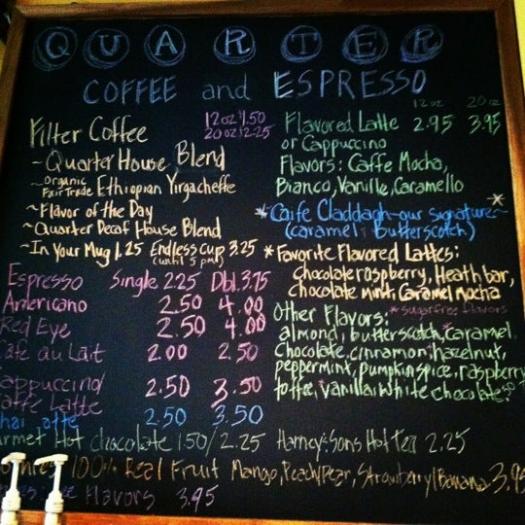 QUARTER
COFFEE and ESPRESSO
Filter Coffee 12oz 1.50
20oz 2.25
~Quarter House Blend
~Organic Fair Trade Ethiopian Yirgacheffe
~Flavor of the Day
~Quarter Decaf House Blend
~In Your Mug 1.25 Endless Cup 3.25
(until 5 pm)
Espresso Single 2.25 Dbl 3.75
Americano 2.50 4.00
Red Eye 2.50 4.00
Cafe au Lait 2.00 2.50
appuccino/
affe Latte 2.50 3.50
hai atte 2.50 3.50
12oz 20oz
Flavored Latte 2.95 3.95
or Cappuccino
Flavors: Caffe Mocha,
Bianco, Vanille, Caramello
*Caife Claddagh~our signature~*
(caramel Butterscotch)
*Favorite Flavored Lattes:
chocolate raspberry, Heath bar,
chocolate mint, Caramel Mocha
Other Flavors: *sugar free flavors
almond, butterscotch, caramel
Chocolate, cinnamon, hazelnut,
peppermint, pumpkin spice, raspberry
toffee, vanilla, white chocolate .50
urmet Hot chocolate 1.50/2.25 Harney & Sons Hot Tea 2.25
100% Real Fruit Mango, Peach/Pear, Strawberry/Banana 3.95
Flavors 3.95